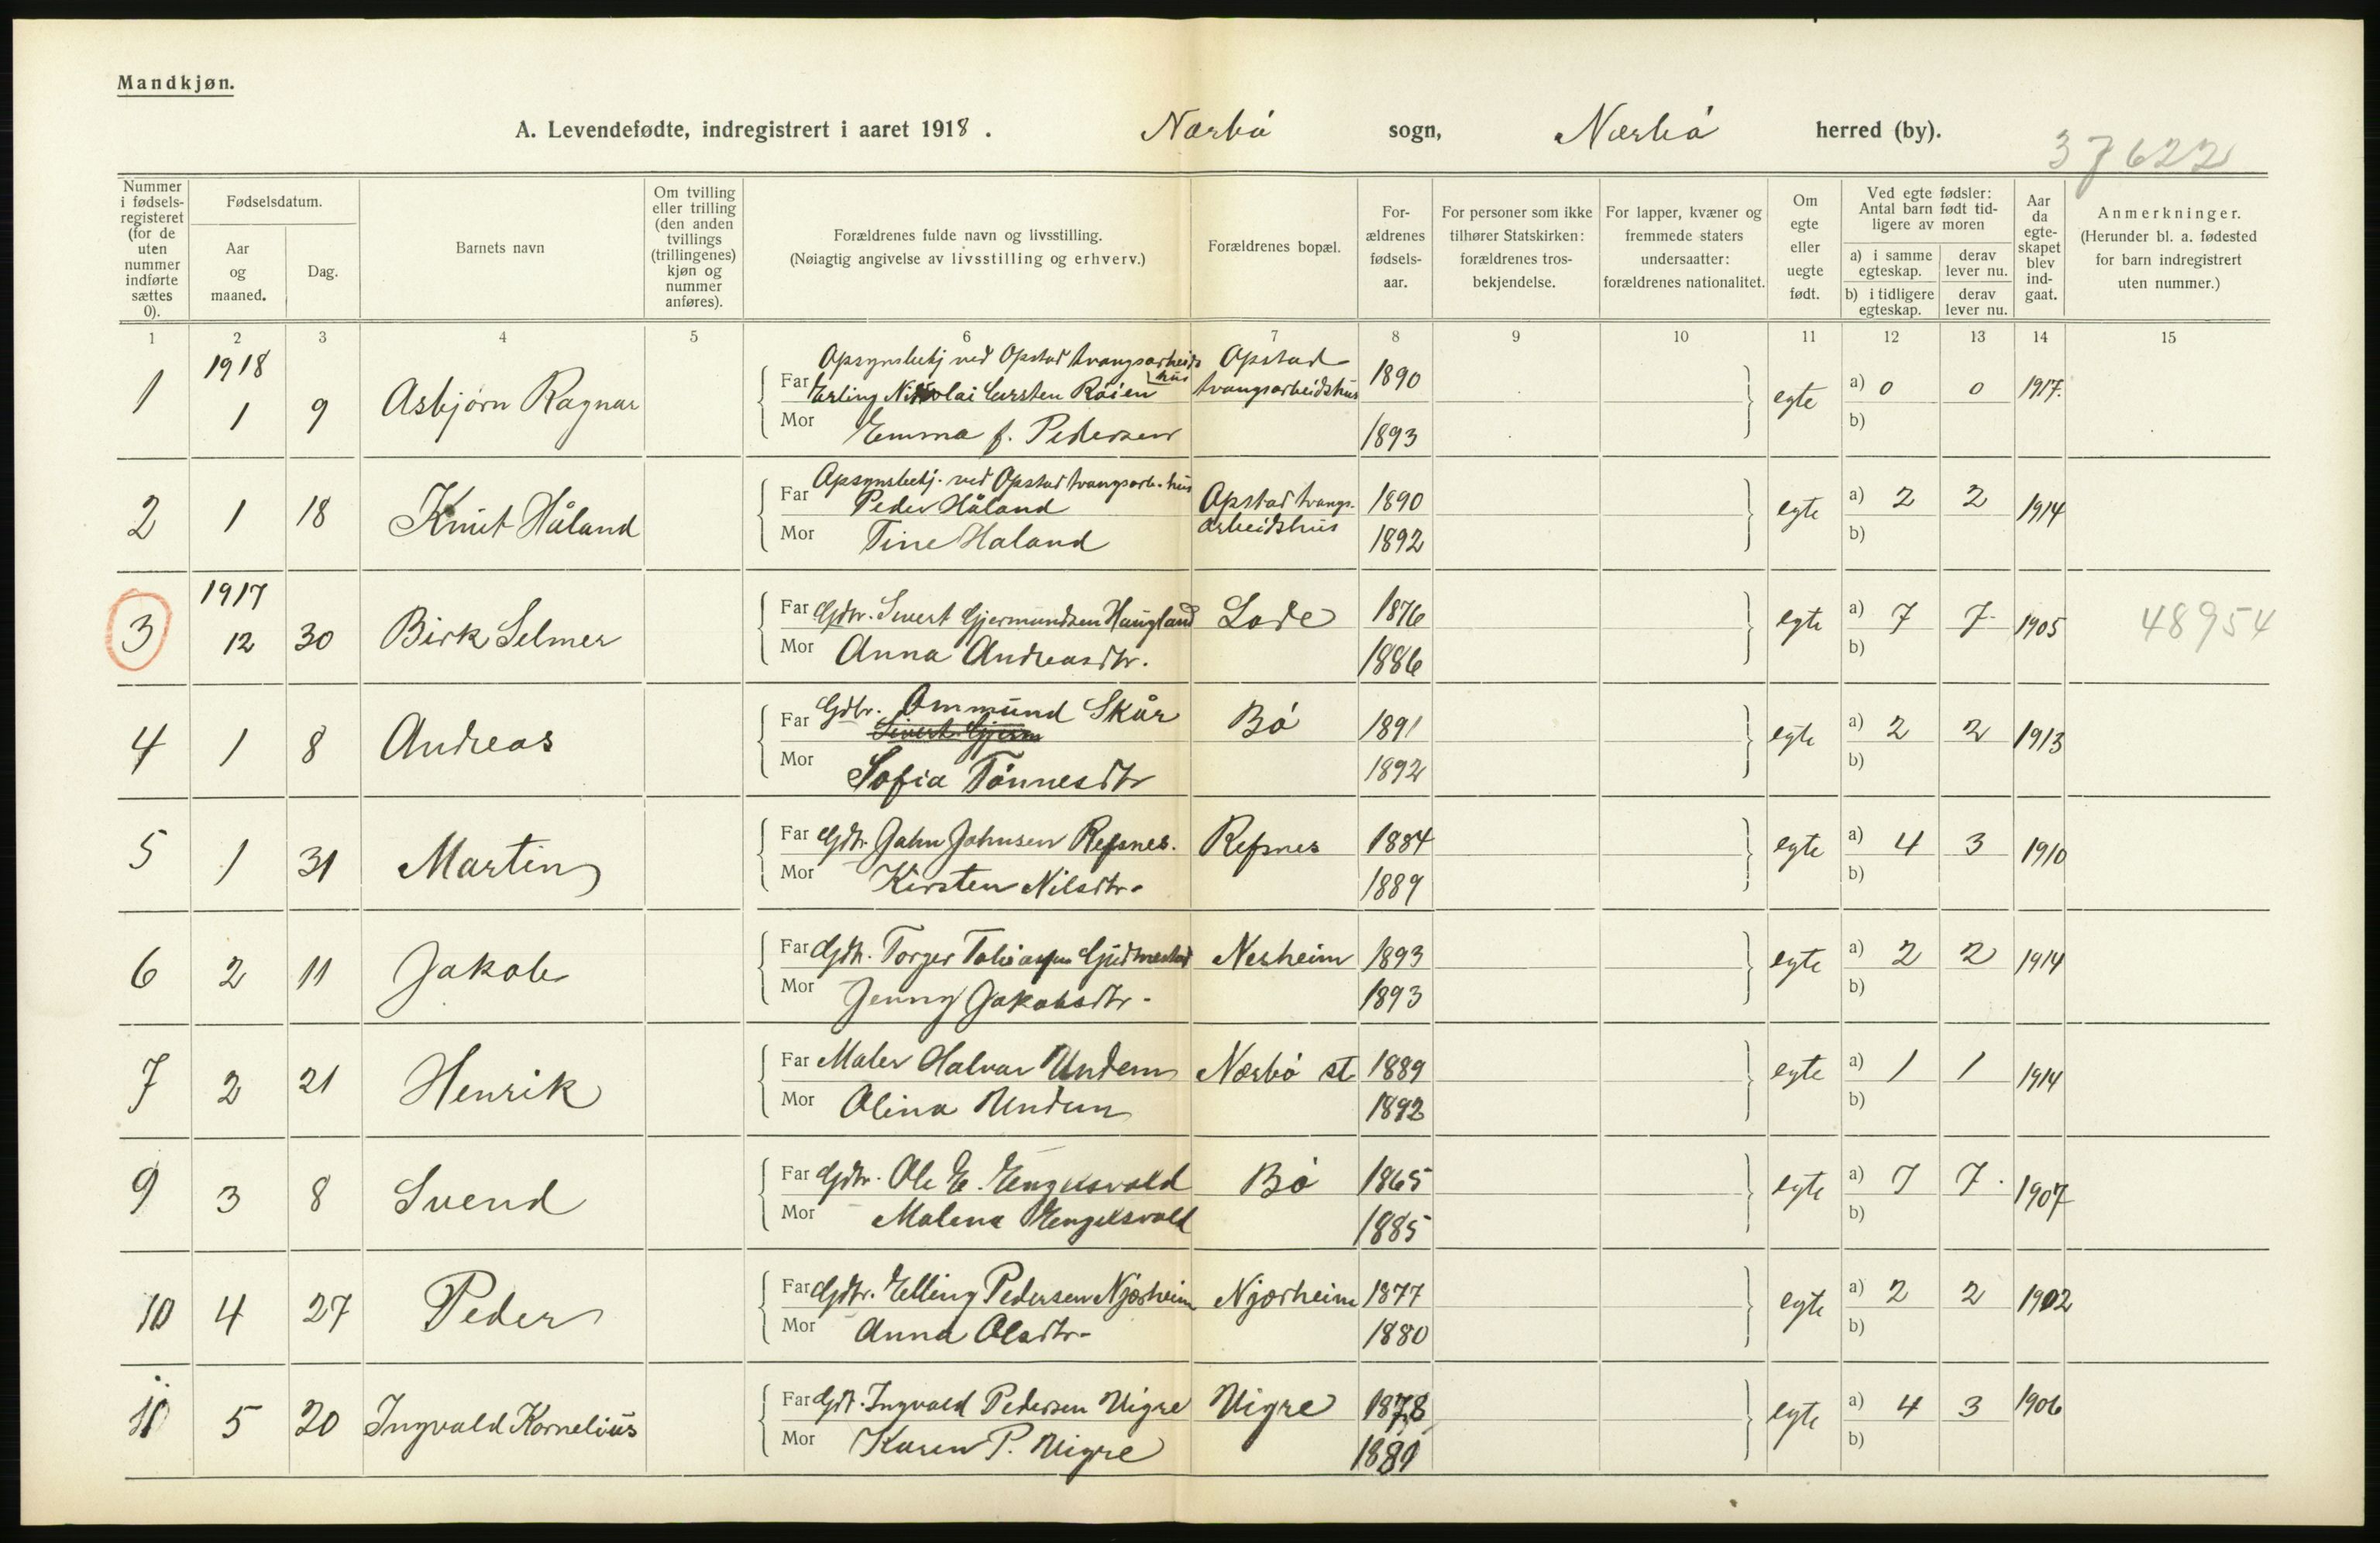 Mandkjøn.
A. Levendefødte, indregistrert i aaret 1918. Nærbø sogn, Nærbø herred (by).
37622
Nummer i fødselsregisteret (for de uten nummer indførte sættes 0).
Fødselsdatum.
Aar og maaned.
Dag.
Barnets navn
Om tvilling eller trilling (den anden tvillings (trillingenes) kjøn og nummer anføres).
Forældrenes fulde navn og livsstilling.
(Nøiagtig angivelse av livsstilling og erhverv.)
Forældrenes bopæl.
Forældrenes fødselsaar.
For personer som ikke tilhører Statskirken: forældrenes trosbekjendelse.
For lapper, kvæner og fremmede staters undersaatter: forældrenes nationalitet.
Om egte eller uegte født.
Ved egte fødsler: Antal barn født tidligere av moren
a) i samme egteskap.
derav lever nu.
b) i tidligere egteskap.
derav lever nu.
Aar da egteskapet blev indgaat.
Anmerkninger.
(Herunder bl. a. fødested for barn indregistrert uten nummer.)
1 2 3 4 5 6 7 8 9 10 11 12 13 14 15
1918
1 1 9 Asbjørn Ragnar
Opsynsbetj ved Opstad tvangsarbeidshus
Far Erling Nikolai Carsten Röien Opstad tvangsarbeidshus 1890
Mor Emma f. Pedersen 1893
egte a) 0 0 1917.
b)
2 1 18 Knut Håland
Opsynsbetj. ved Opstad tvangsarb.hus
Far Peder Håland Opstad tvangsarbeidshus 1890
Mor Tine Håland 1892
egte a) 2 2 1914
b)
1917
3 12 30 Birk Selmer
Far Gdbr. Sivert Gjermundsen Haugland Lode 1876
Mor Anna Andreasdtr. 1886
egte a) 7 7 1905 48954
b)
4 1 8 Andreas
Far Gdbr. Ommund Skår Bø 1891
Sivert Gjerm
Mor Sofia Tönnesdtr 1892
egte a) 2 2 1913
b)
5 1 31 Martin
Far Gdbr. Jahn Johnsen Refsnes. Refsnes 1884
Mor Kirsten Nilsdtr. 1889
egte a) 4 3 1910
b)
6 2 11 Jakob
Far Gdbr. Torger Tobiassen Gudmestad Nesheim 1893
Mor Jenny Jakobsdtr. 1893
egte a) 2 2 1914
b)
7 2 21 Henrik
Far Maler Halvar Undem Nærbø st 1889
Mor Olina Undem 1892
egte a) 1 1 1914
b)
9 3 8 Svend
Far Gdbr. Ole E. Engelsvold Bø 1865
Mor Malena Engelsvold 1885
egte a) 7 7. 1907
b)
10 4 27 Peder
Far Gdbr. Elling Pedersen Njærheim Njærheim 1877
Mor Anna Olsdtr. 1880
egte a) 2 2 1902
b)
11 5 20 Ingvald Kornelius
Far Gdb. Ingvald Pedersen Vigre Vigre 1878
Mor Karen P. Vigre 1881
egte a) 4 3 1906
b)